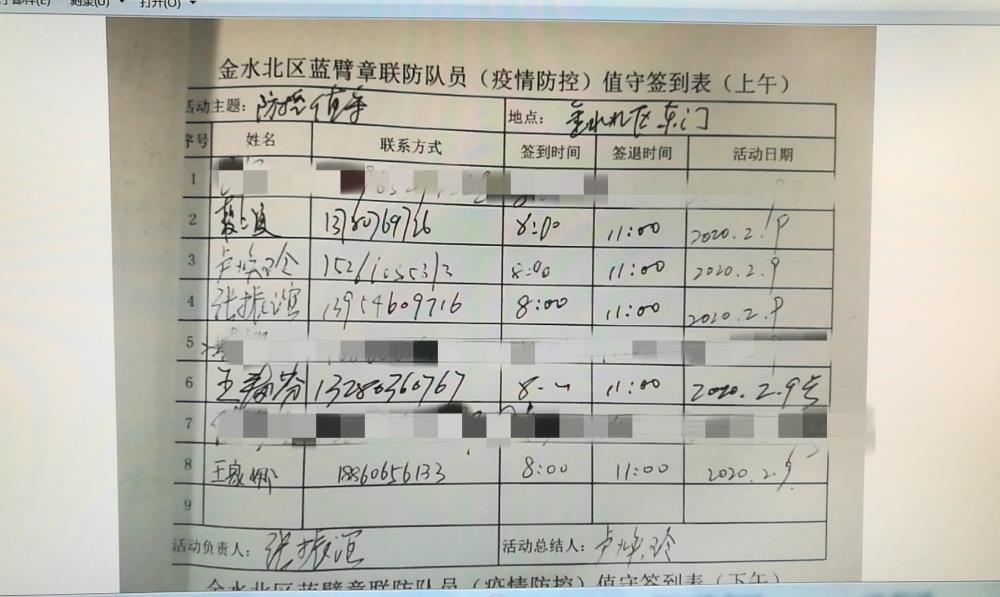 金水北区蓝臂章联防队员（疫情防控）值守签到表（上午）
活动主题：防控值守 地点：金水北区东门
序号 姓名 联系方式 签到时间 签退时间 活动日期
1
2 8:00 11:00 2020.2.9
3 卢焕玲 15261055313 8:00 11:00 2020.2.9
4 张振谊 13954609716 8:00 11:00 2020.2.9
5
6 王 芬 13280360767 8 11:00 2020.2.9号
7
8 王家娜 18860656133 8:00 11:00 2020.2.9
9
活动负责人：张振谊 活动总结人：卢焕玲
金水北区蓝臂章联防队员（疫情防控）值守签到表（下午）